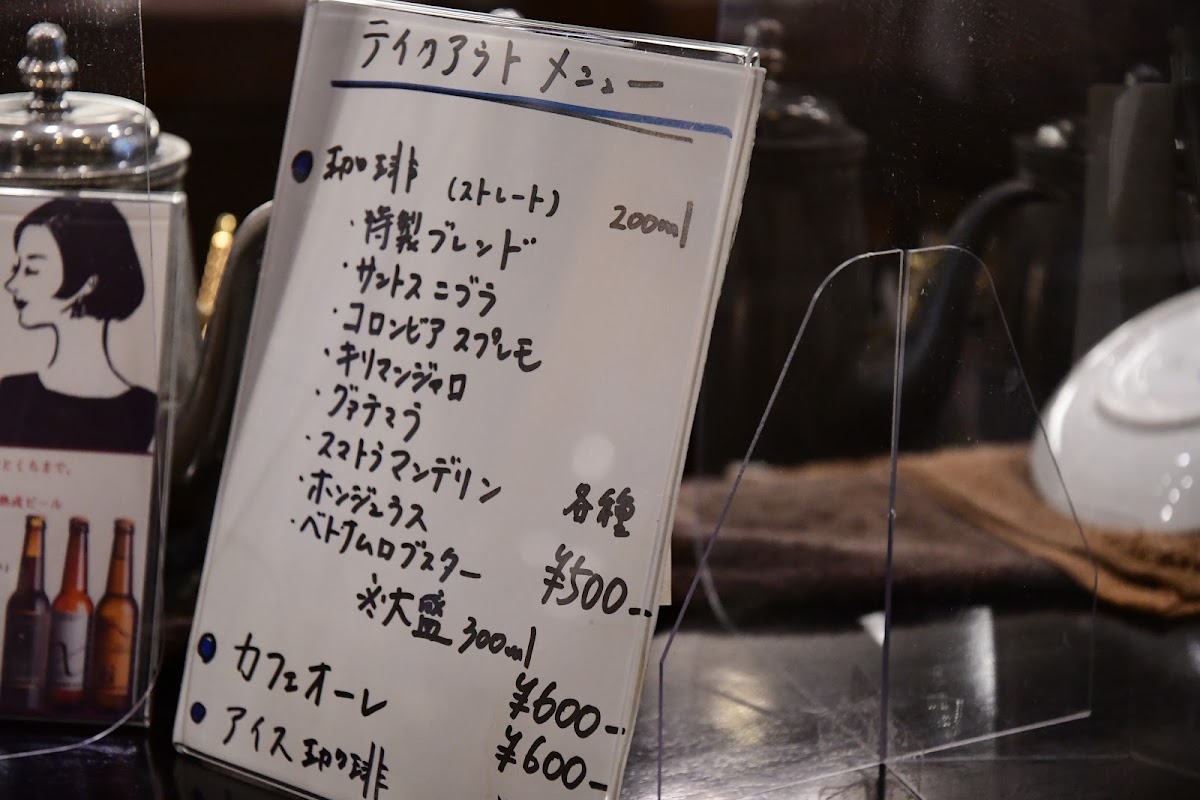 テイクアウト メニュー
珈琲 (ストレート) 200ml
・特製ブレンド
・サントス ニブラ
・コロンビア スプレモ
・キリマンジャロ
・グァテマラ
・スマトラマンデリン 各種
・ホンジュラス
・ベトナムロブスター ¥500--
※大盛 300ml
¥600--
カフェオーレ ¥600-
アイス珈琲
とくちまで、
熟成ビール